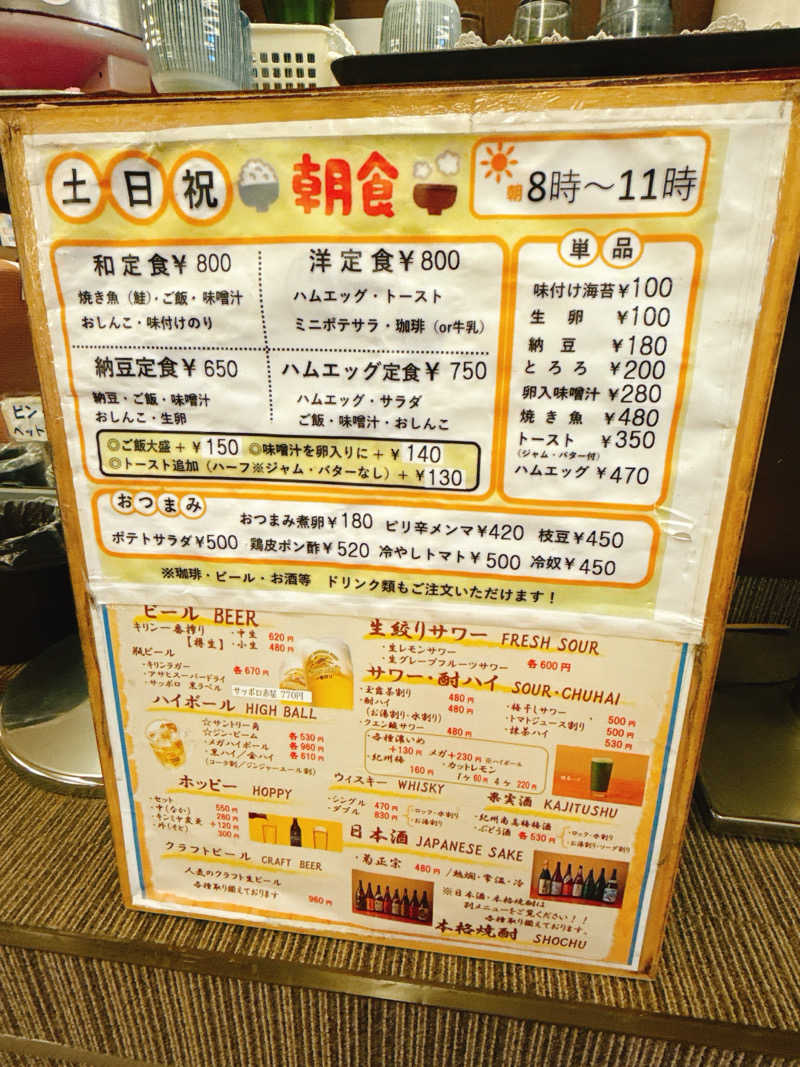 土日祝 朝食 朝8時～11時
和定食￥800
焼き魚（鮭）・ご飯・味噌汁
おしんこ・味付けのり
洋定食￥800
ハムエッグ・トースト
ミニポテサラ・珈琲（or牛乳）
納豆定食￥650
納豆・ご飯・味噌汁
おしんこ・生卵
ハムエッグ定食￥750
ハムエッグ・サラダ
ご飯・味噌汁・おしんこ
◎ご飯大盛＋￥150 ◎味噌汁を卵入りに＋￥140
◎トースト追加（ハーフ※ジャム・バターなし）＋￥130
単品
味付け海苔￥100
生卵 ￥100
納豆 ￥180
とろろ ￥200
卵入味噌汁￥280
焼き魚 ￥480
トースト ￥350
（ジャム・バター付）
ハムエッグ ￥470
おつまみ
おつまみ煮卵￥180 ピリ辛メンマ￥420 枝豆￥450
ポテトサラダ￥500 鶏皮ポン酢￥520 冷やしトマト￥500 冷奴￥450
※珈琲・ビール・お酒等 ドリンク類もご注文いただけます！
ピン
ペット
ビール BEER
キリン一番搾り ・中生 620円
【樽生】 ・小生 480円
瓶ビール
・キリンラガー
・アサヒスーパードライ 各670円
・サッポロ 黒ラベル
サッポロ赤星 770円
ハイボール HIGH BALL
☆サントリー角
☆ジン・ビーム 各530円
・メガハイボール 各960円
・黒ハイ／金ハイ 各610円
（コーク割／ジンジャーエール割）
ホッピー HOPPY
・セット 550円
・中（なか） 280円
・キンミヤ変更 +120円
・外（そと） 300円
クラフトビール CRAFT BEER
人気のクラフト生ビール
各種取り揃えております 960円
生絞りサワー FRESH SOUR
・生レモンサワー
・生グレープフルーツサワー 各600円
サワー・酎ハイ SOUR・CHUHAI
・玉露茶割り 480円
・酎ハイ 480円
（お湯割り・水割り）
・クエン酸サワー 480円
・梅干しサワー 500円
・トマトジュース割り 500円
・抹茶ハイ 530円
・各種濃いめ
+130円 メガ+230円 ※ハイボール
・紀州梅 160円
・カットレモン
1ヶ60円 4ヶ220円
ウィスキー WHISKY
・シングル 470円
・ダブル 830円
・ロック・水割り
・お湯割り
果実酒 KAJITUSHU
・紀州南高梅梅酒
・ぶどう酒 各530円
・ロック・水割り
・お湯割り・ソーダ割り
日本酒 JAPANESE SAKE
・菊正宗 480円／熱燗・常温・冷
※日本酒・本格焼酎は
別メニューをご覧ください！！
各種取り揃えております。
本格焼酎 SHOCHU